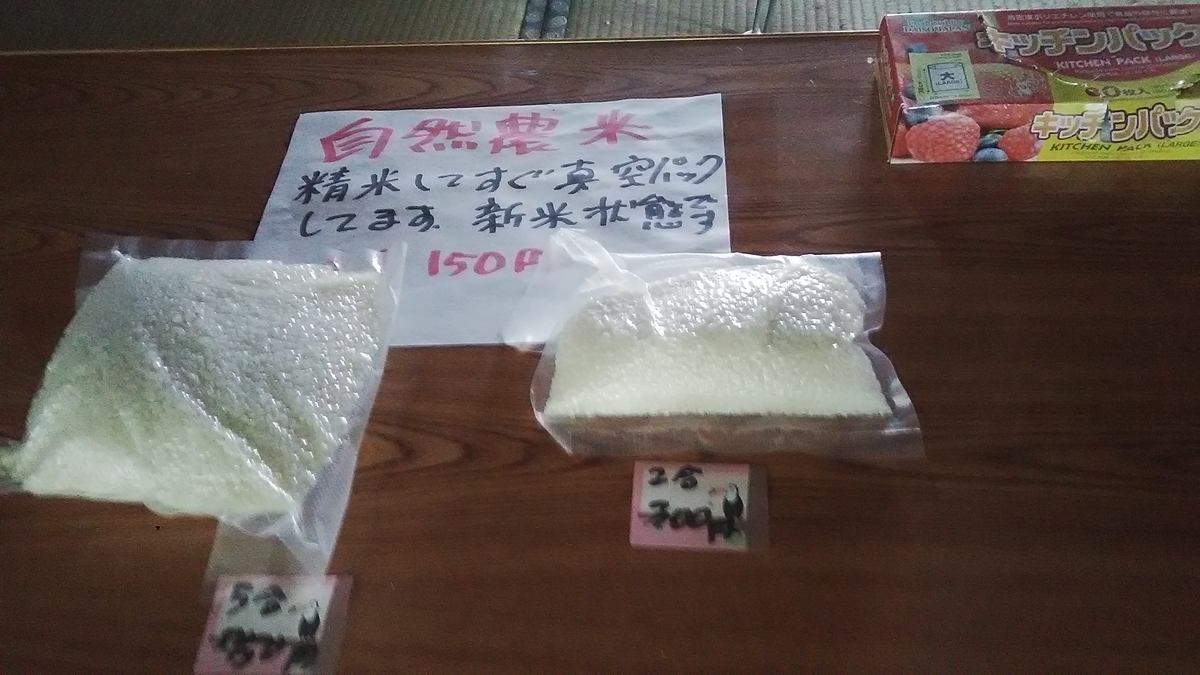 自然農米
精米してすぐ真空パック
してます 新米状態です
150円
キッチンパック
KITCHEN PACK (LARGE)
大
(LARGE)
キッチンパック
KITCHEN PACK (LARGE)
2合
300円
5合